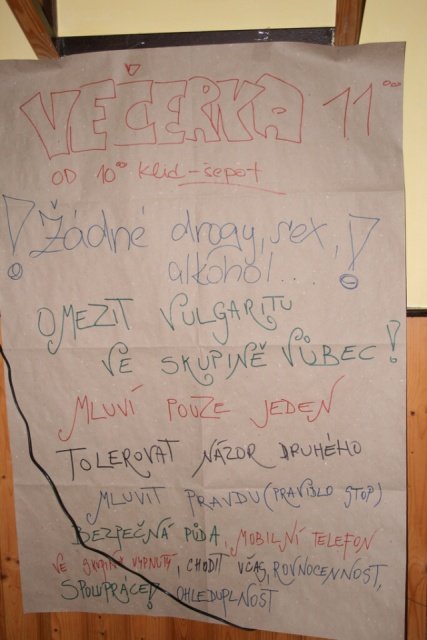 VEČERKA 11°°
OD 10°° klid - šepot
! Žádné drogy, sex, !
alkohol...
OMEZIT VULGARITU
VE SKUPINĚ VŮBEC!
MLUVÍ POUZE JEDEN
TOLEROVAT NÁZOR DRUHÉHO
MLUVIT PRAVDU (PRAVIDLO STOP)
BEZPEČNÁ PŮDA, MOBILNÍ TELEFON
VE SKUPINĚ VYPNUTÝ, CHODIT VČAS, ROVNOCENNOST,
SPOLUPRÁCE, OHLEDUPLNOST